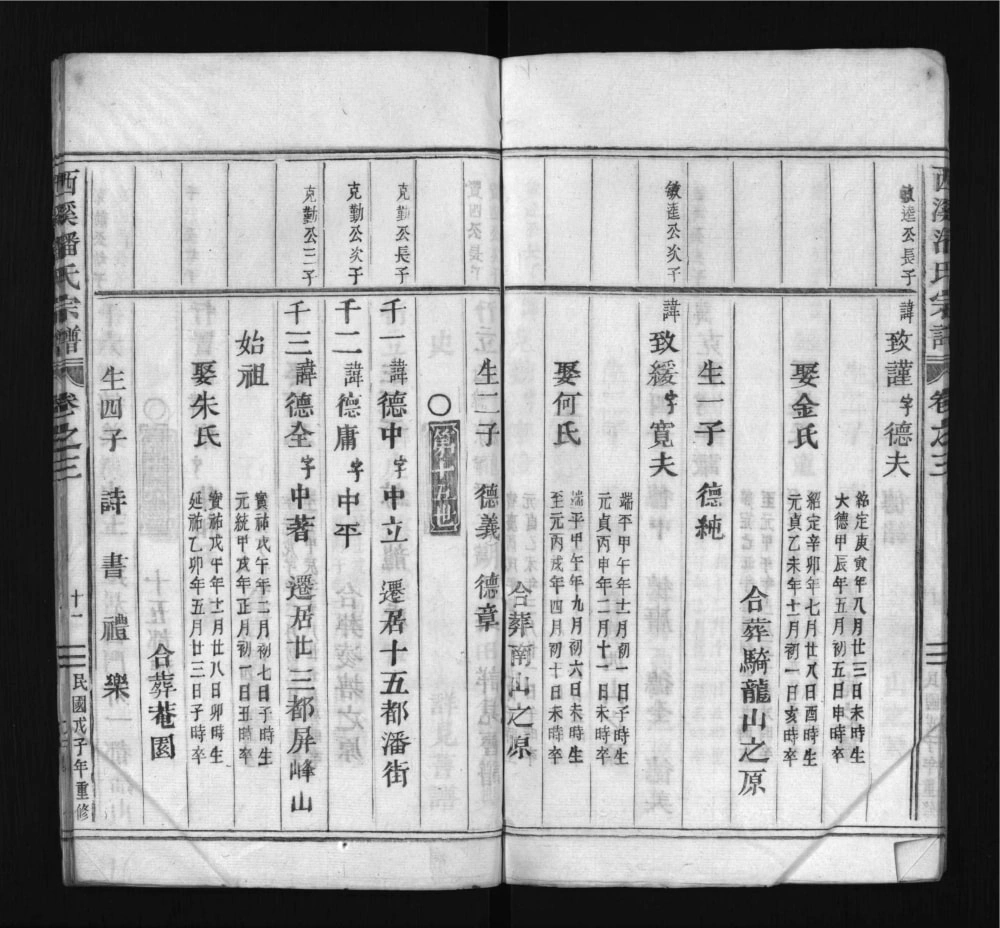 西溪潘氏宗譜 卷之三
敏達公長子
諱致謹字德夫
紹定庚寅年八月廿三日未時生
大德甲辰年五月初五日申時卒
娶金氏
紹定辛卯年七月廿八日酉時生
元貞乙未年十一月初一日亥時卒
合葬騎龍山之原
生一子 德純
敏達公次子
諱致緩字寬夫
端平甲午年十一月初一日子時生
元貞丙申年二月十一日未時卒
娶何氏
端平甲午年九月初六日未時生
至元丙戌年四月初十日未時卒
合葬南山之原
生二子 德義 德章
○第十五世
克勤公長子
千一諱德中字中立 遷居十五都潘街
克勤公次子
千二諱德庸字中平
克勤公三子
千三諱德全字中著 遷居廿三都屏峰山
始祖
寶祐戊午年二月初七日子時生
元統甲戌年正月初四日丑時卒
娶朱氏
寶祐戊午年十一月廿八日卯時生
延祐乙卯年五月廿三日子時卒
合葬菴園
生四子 詩 書 禮 樂
西溪潘氏宗譜 卷之三 十一 民國戊子年重修